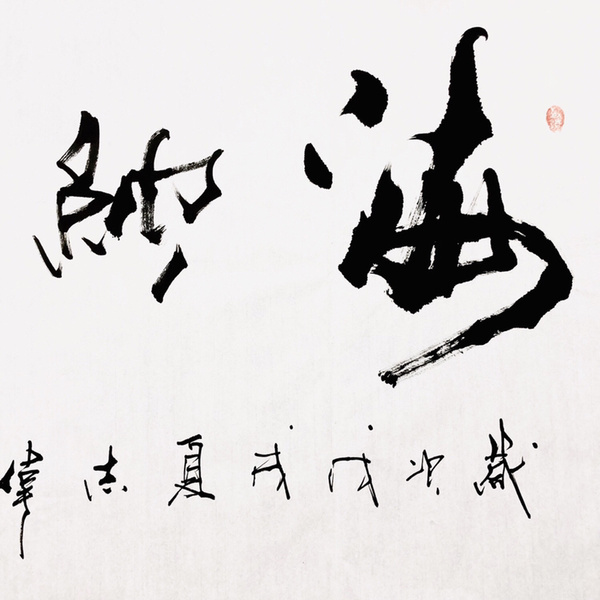 海納
歲次戊戌夏志偉